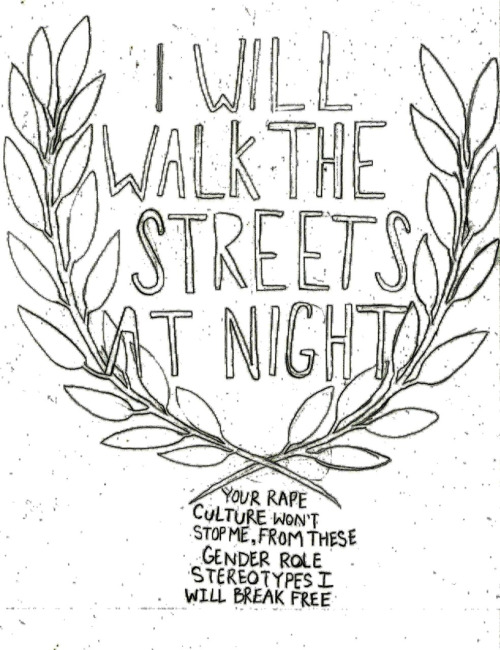 I WILL
WALK THE
STREETS
AT NIGHT
YOUR RAPE
CULTURE WON'T
STOP ME, FROM THESE
GENDER ROLE
STEREOTYPES I
WILL BREAK FREE